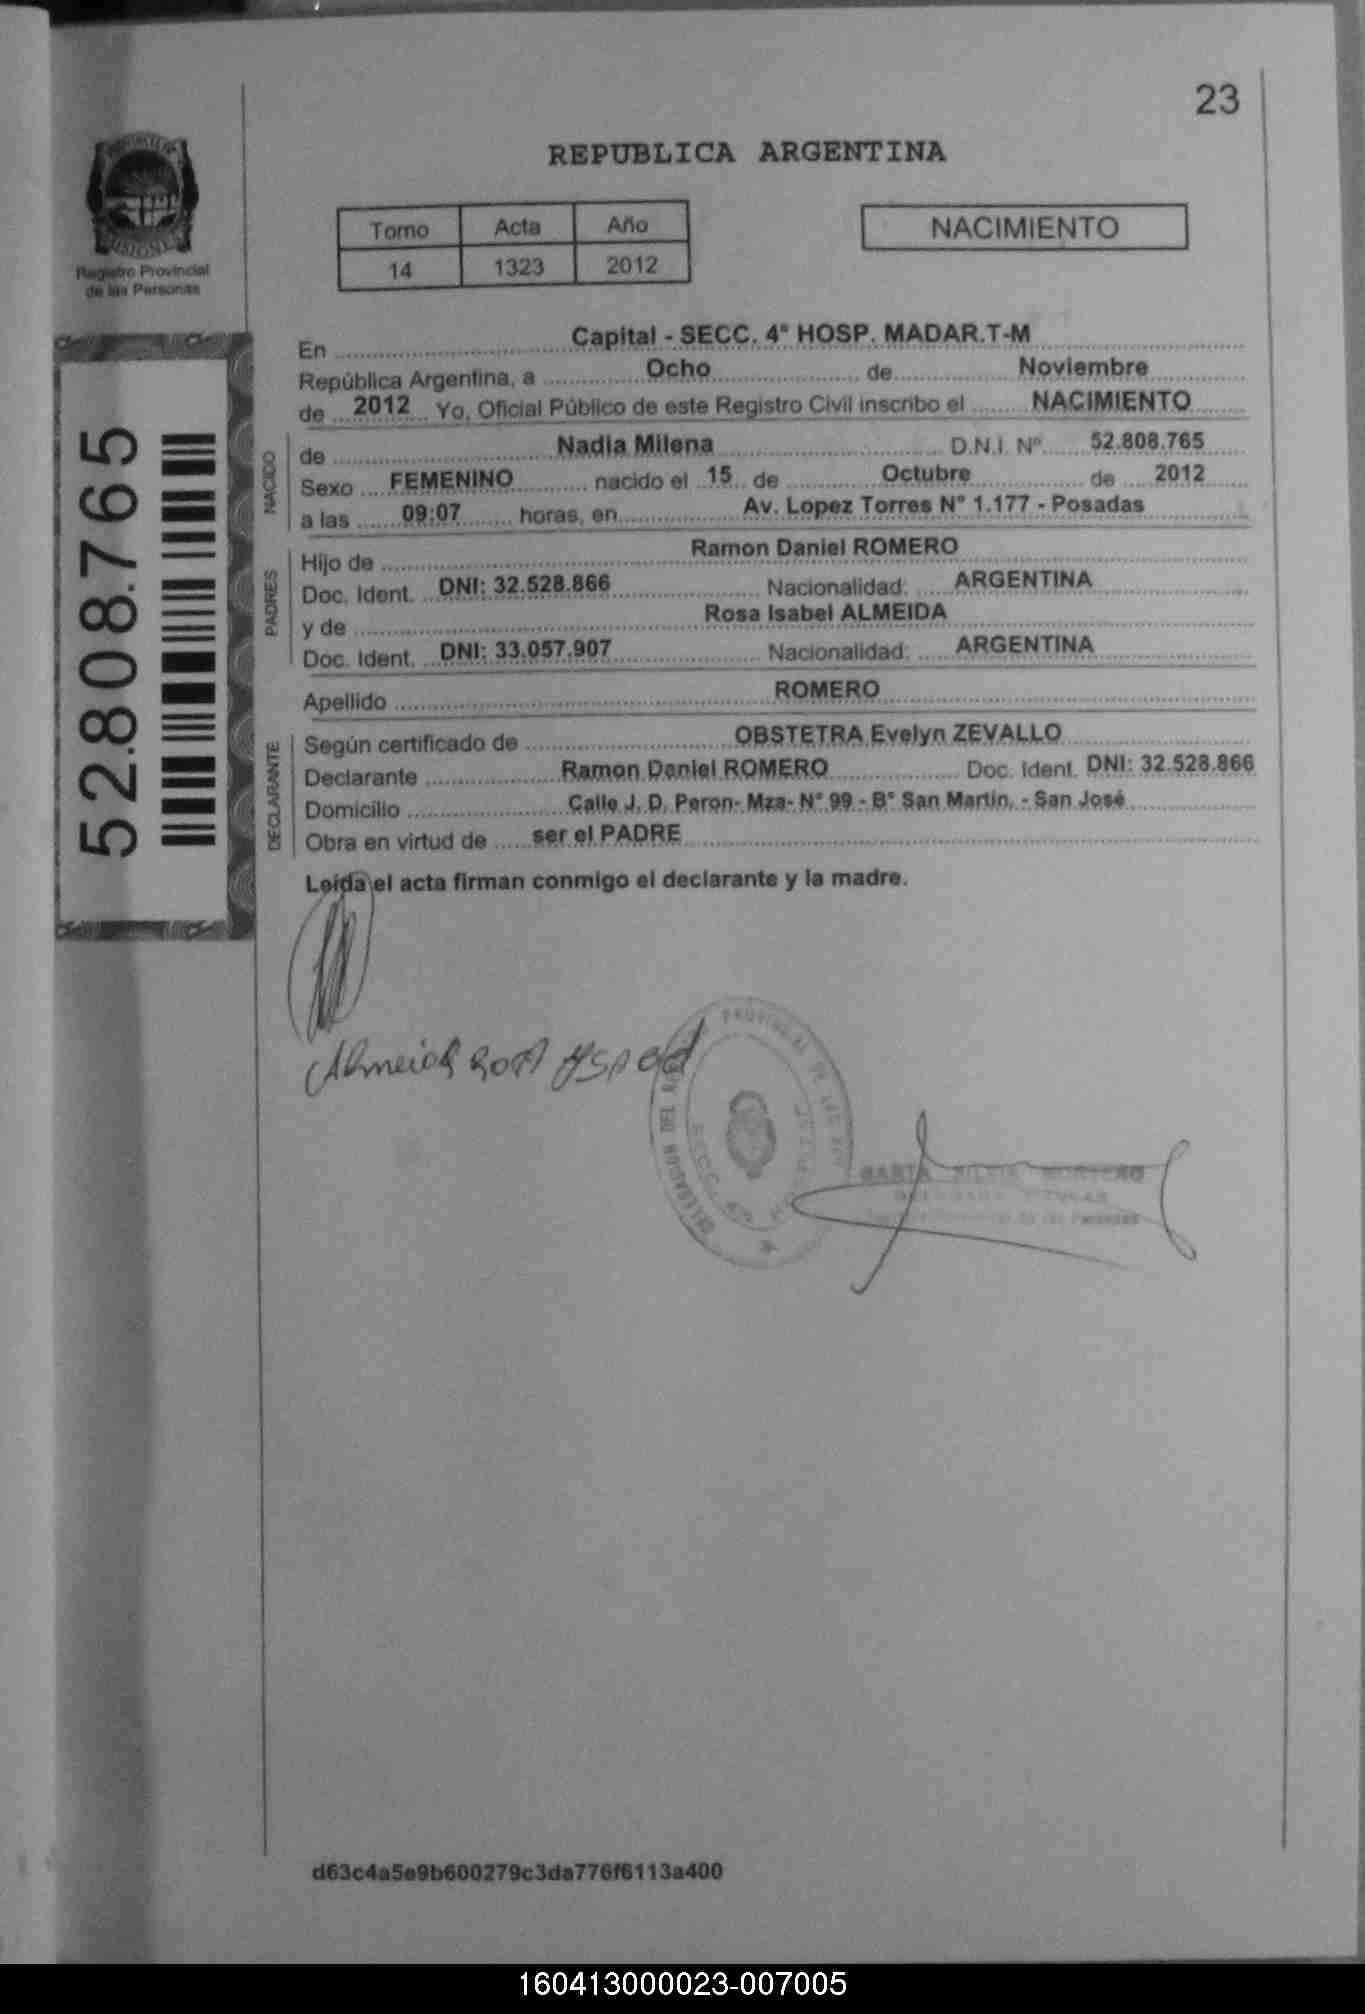 23
REPUBLICA ARGENTINA
Tomo Acta Año
14 1323 2012
NACIMIENTO
Registro Provincial
de las Personas
52.808.765
En Capital - SECC. 4° HOSP. MADAR.T-M
República Argentina, a Ocho de Noviembre
de 2012 Yo, Oficial Público de este Registro Civil inscribo el NACIMIENTO
NACIDO
de Nadia Milena D.N.I. Nº 52.808.765
Sexo FEMENINO nacido el 15 de Octubre de 2012
a las 09:07 horas, en Av. Lopez Torres N° 1.177 - Posadas
PADRES
Hijo de Ramon Daniel ROMERO
Doc. Ident. DNI: 32.528.866 Nacionalidad: ARGENTINA
y de Rosa Isabel ALMEIDA
Doc. Ident. DNI: 33.057.907 Nacionalidad: ARGENTINA
Apellido ROMERO
DECLARANTE
Según certificado de OBSTETRA Evelyn ZEVALLO
Declarante Ramon Daniel ROMERO Doc. Ident. DNI: 32.528.866
Domicilio Calle J. D. Peron- Mza- N° 99 - B° San Martin. - San José
Obra en virtud de ser el PADRE
Leída el acta firman conmigo el declarante y la madre.
Almeida Rosa Isabel
PROVINCIAL DE LAS
DELEGACION DEL
SECC. 4ª
d63c4a5e9b600279c3da776f6113a400
160413000023-007005